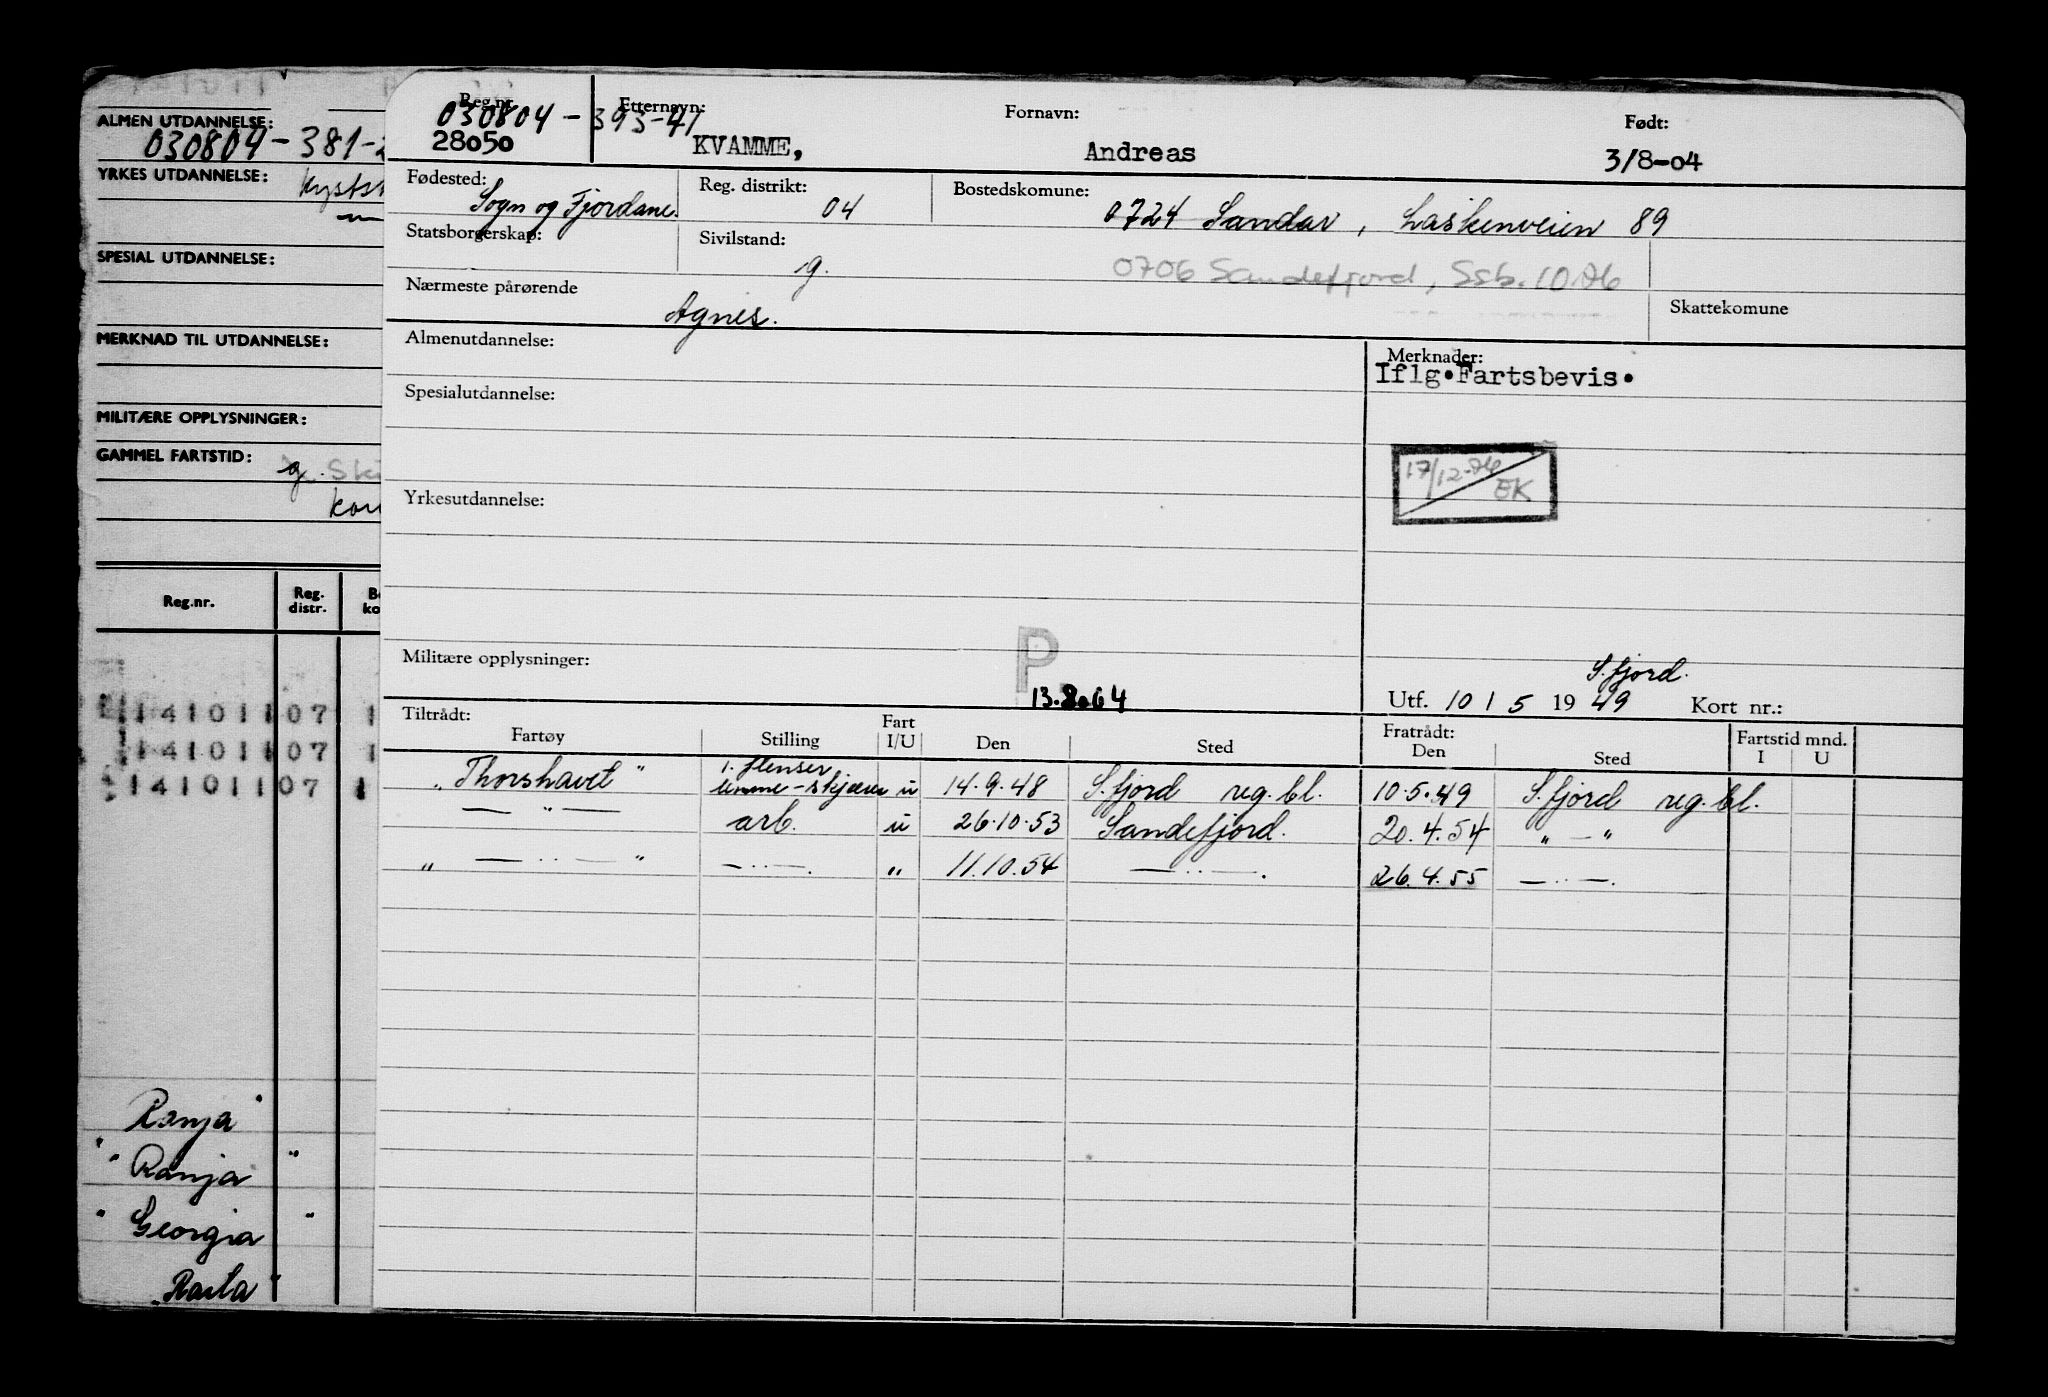 ALMEN UTDANNELSE:
030804-381-
YRKES UTDANNELSE:
SPESIAL UTDANNELSE:
MERKNAD TIL UTDANNELSE:
MILITÆRE OPPLYSNINGER:
GAMMEL FARTSTID: g.
Reg.nr. Reg. distr.
14101107 1
14101107 1
14101107 1
Ranja "
" Ranja "
" Georgia "
"Rasta"
Reg.nr. Etternavn: Fornavn: Født:
030804-393-47
28050 KVAMME, Andreas 3/8-04
Fødested: Reg. distrikt: Bostedskomune:
Sogn og Fjordane. 04 0724 Sandar, Laskenveien 89
Statsborgerskap: Sivilstand:
g. 0706 Sandefjord, Ssb. 10.76
Nærmeste pårørende Skattekomune
Agnes.
Almenutdannelse: Merknader:
Iflg.Fartsbevis.
Spesialutdannelse:
17/12-76
EK
Yrkesutdannelse:
P.
Militære opplysninger: S.fjord.
13.8.64 Utf. 10 / 5 19 49 Kort nr.:
Tiltrådt: Fratrådt: Fartstid mnd.
Fartøy Stilling Fart I/U Den Sted Den Sted I U
1. flenser
"Thorshavet" lemme-skjærer u 14.9.48 S.fjord reg.bl. 10.5.49 S.fjord reg.bl.
— " — arb. u 26.10.53 Sandefjord. 20.4.54 " — "
" — .. — " — .. —. " 11.10.54 — .. —. 26.4.55 — .. —.